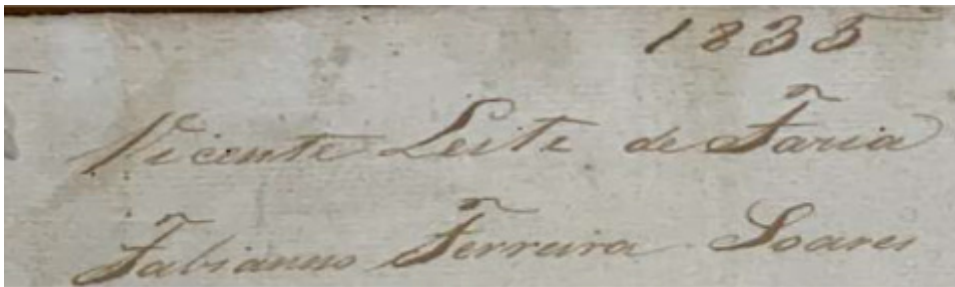 1835
Vicente Leite de Faria
Fabianno Ferreira Soares